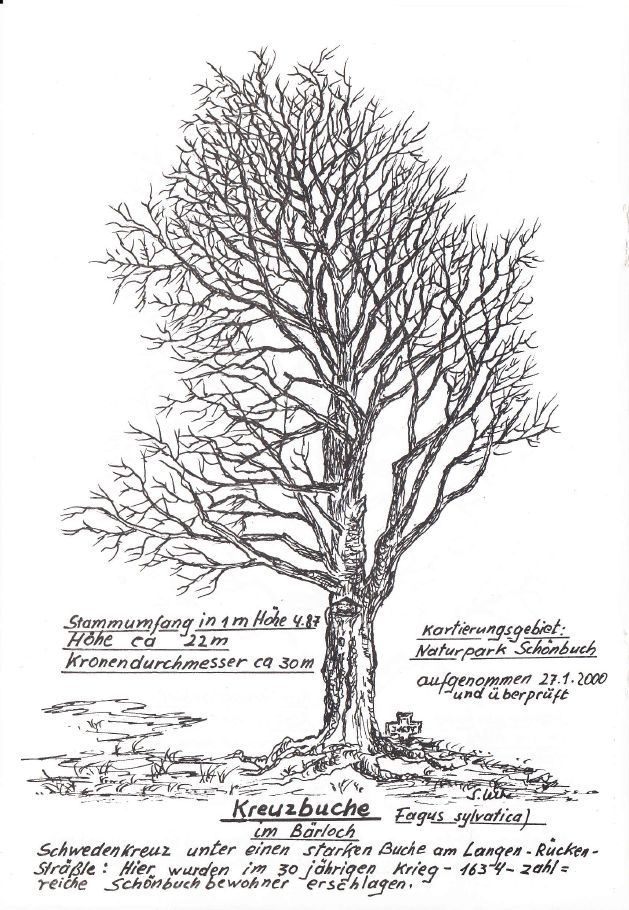 Stammumfang in 1m Höhe 4.87
Höhe ca 22m
Kronendurchmesser ca 30m
Kartierungsgebiet:
Naturpark Schönbuch
aufgenommen 27.1.2000
und überprüft
Kreuzbuche
im Bärloch
Fagus sylvatica)
Schwedenkreuz unter einen starken Buche am Langen-Rücken-
Sträßle: Hier wurden im 30 jährigen Krieg - 1634 - zahl=
reiche Schönbuchbewohner erschlagen.